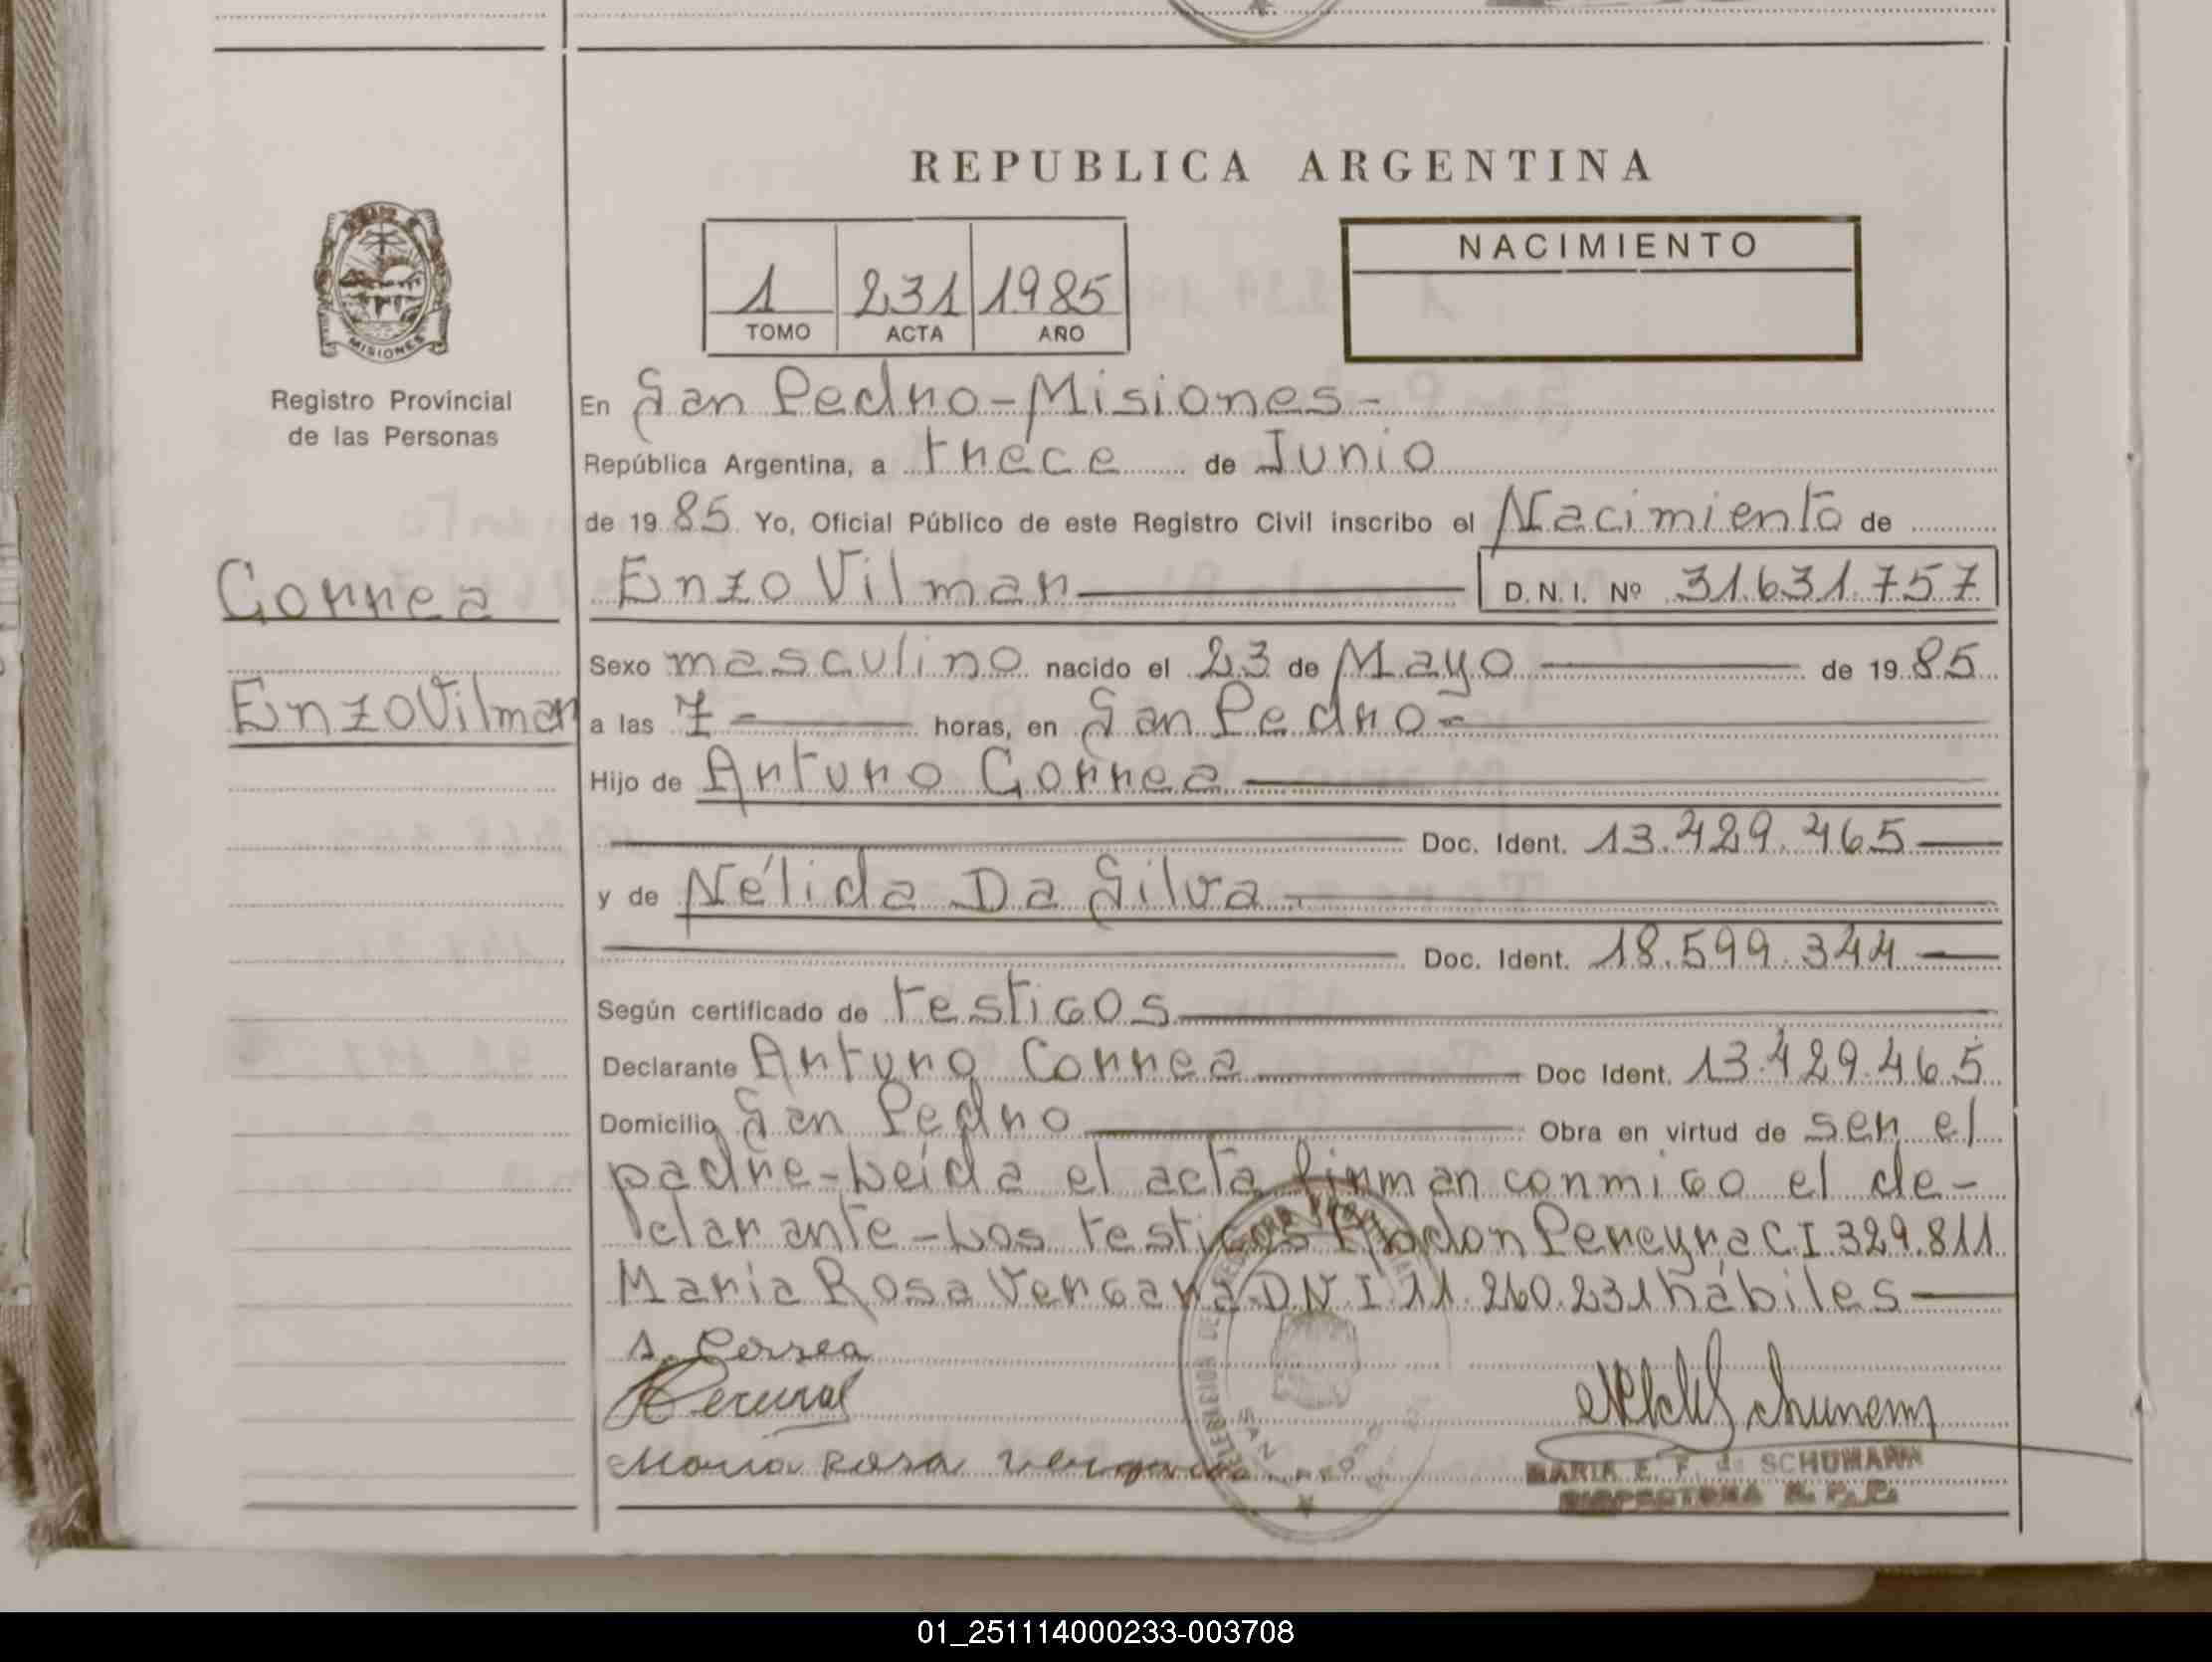 REPUBLICA ARGENTINA
NACIMIENTO
1 231 1985
TOMO ACTA AÑO
MISIONES
Registro Provincial
de las Personas
En San Pedro-Misiones-
República Argentina, a trece de Junio
de 1985 Yo, Oficial Público de este Registro Civil inscribo el Nacimiento de
Correa
Enzo Vilmar D.N.I. Nº 31.631.757
Sexo masculino nacido el 23 de Mayo de 1985
Enzo Vilmar
a las 7- horas, en San Pedro-
Hijo de Arturo Correa
Doc. Ident. 13.429.465
y de Nélida Da Silva
Doc. Ident. 18.599.344
Según certificado de testigos
Declarante Arturo Correa Doc Ident. 13.429.465
Domicilio San Pedro Obra en virtud de ser el
padre-Leída el acta firman conmigo el de-
clarante-Los testigos Pereyra C.I. 329.811
Maria Rosa Vergara D.N.I. 11.260.231 hábiles
A. Correa
Maria Rosa Vergara
MARIA E. F. d. SCHUMANN
INSPECTORA R. P. P.
01_251114000233-003708